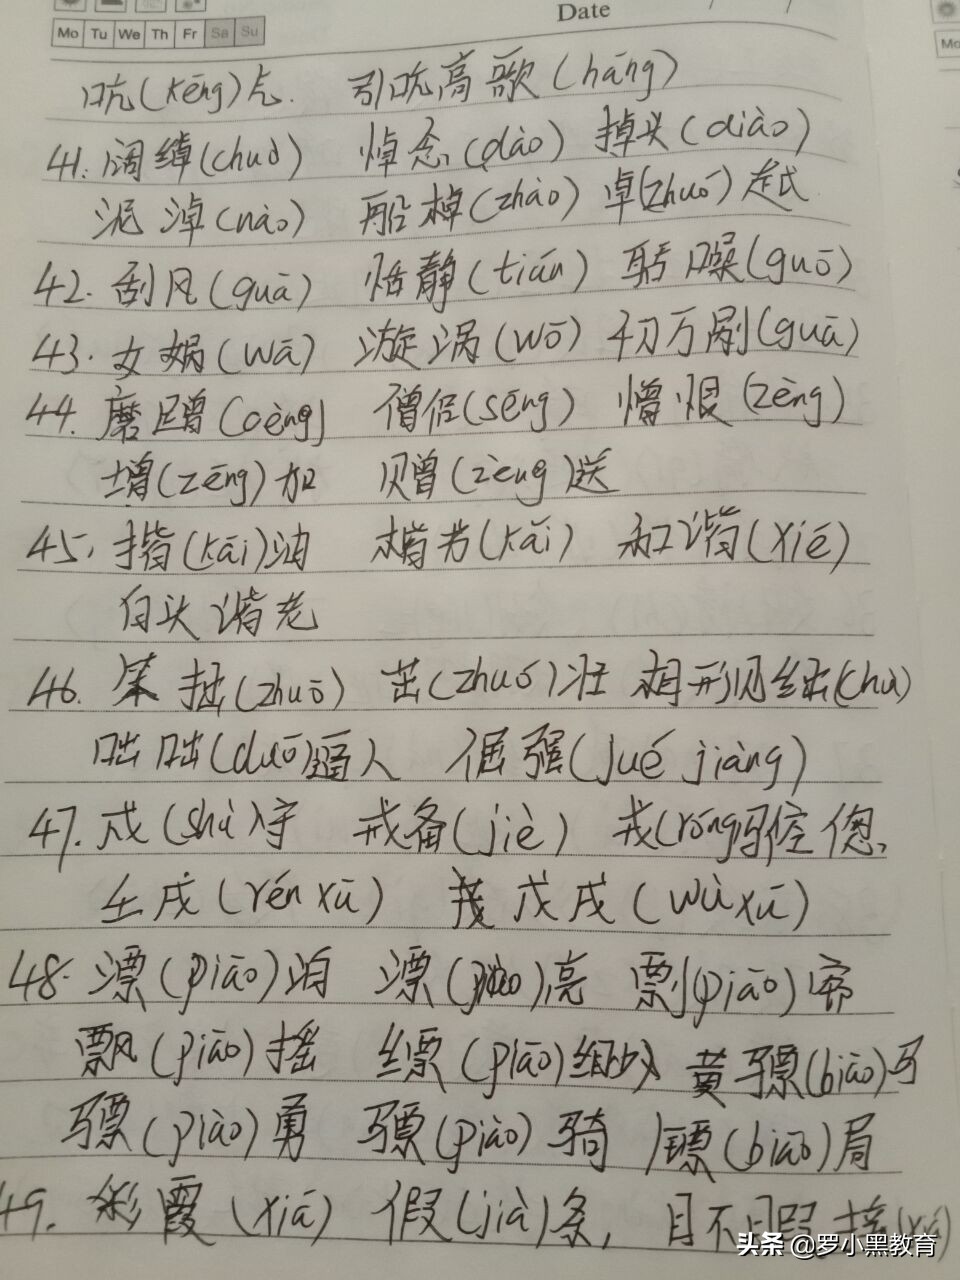 Date
Mo Tu We Th Fr Sa Su
Mo
吭(kēng)气 引吭高歌(háng)
41.阔绰(chuò) 悼念(dào) 掉头(diào)
泥淖(nào) 船棹(zhào) 卓(zhuó)越
42.刮风(guā) 恬静(tián) 聒噪(guō)
43.女娲(wā) 漩涡(wō) 千刀万剐(guā)
44.磨蹭(cèng) 僧侣(sēng) 憎恨(zēng)
增(zēng)加 赠(zèng)送
45.揩(kāi)油 楷书(kǎi) 和谐(xié)
白头谐老
46.笨拙(zhuō) 茁(zhuó)壮 相形见绌(chù)
咄咄(duō)逼人 倔强(jué jiàng)
47.戍(shù)守 戒备(jiè) 戎(róng)马倥偬
壬戌(rén xū) 戊戌(wù xū)
48.漂(piāo)泊 漂()亮 剽(piāo)窃
飘(piāo)摇 缥(piāo)缈 黄骠(biāo)马
骠(piào)勇 骠(piào)骑 镖(biāo)局
49.彩霞(xiá) 假(jià)条, 目不暇接(xiá)
头条 @罗小黑教育